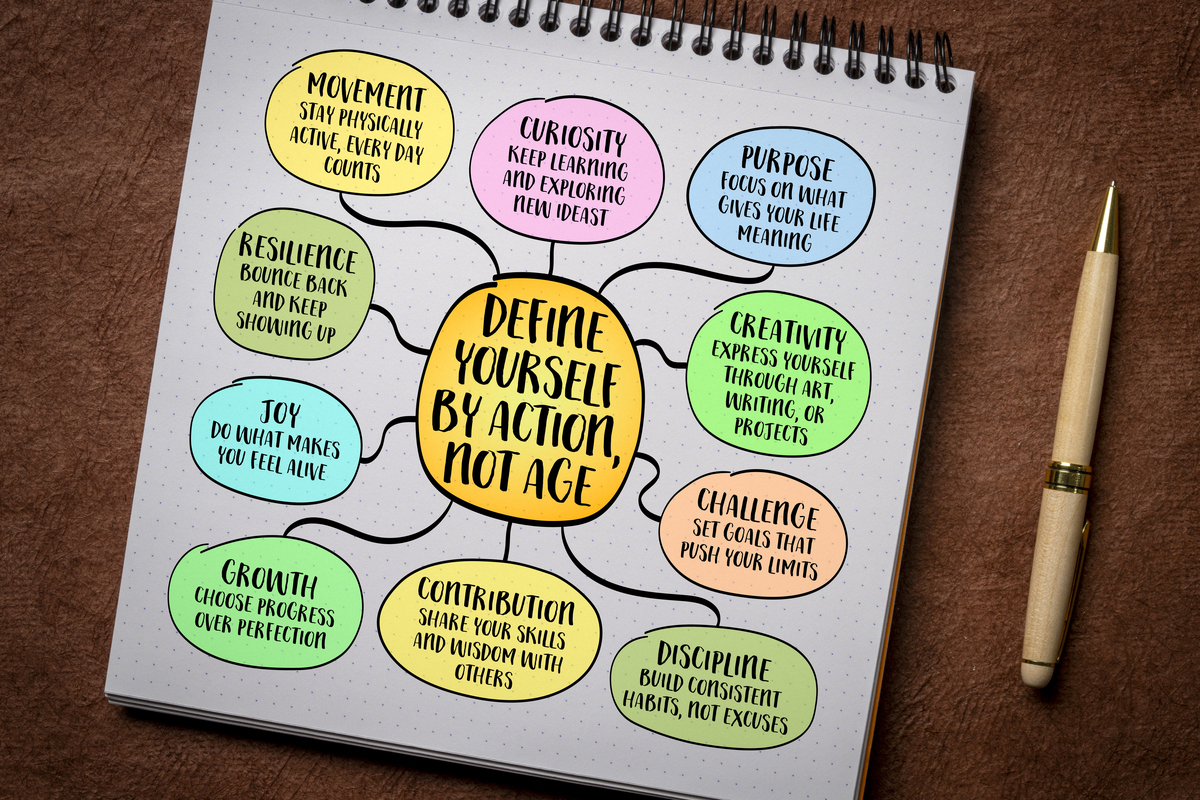 MOVEMENT
STAY PHYSICALLY
ACTIVE, EVERY DAY
COUNTS
CURIOSITY
KEEP LEARNING
AND EXPLORING
NEW IDEAST
PURPOSE
FOCUS ON WHAT
GIVES YOUR LIFE
MEANING
RESILIENCE
BOUNCE BACK
AND KEEP
SHOWING UP
DEFINE
YOURSELF
BY ACTION,
NOT AGE
CREATIVITY
EXPRESS YOURSELF
THROUGH ART,
WRITING, OR
PROJECTS
JOY
DO WHAT MAKES
YOU FEEL ALIVE
CHALLENGE
SET GOALS THAT
PUSH YOUR LIMITS
GROWTH
CHOOSE PROGRESS
OVER PERFECTION
CONTRIBUTION
SHARE YOUR SKILLS
AND WISDOM WITH
OTHERS
DISCIPLINE
BUILD CONSISTENT
HABITS, NOT EXCUSES